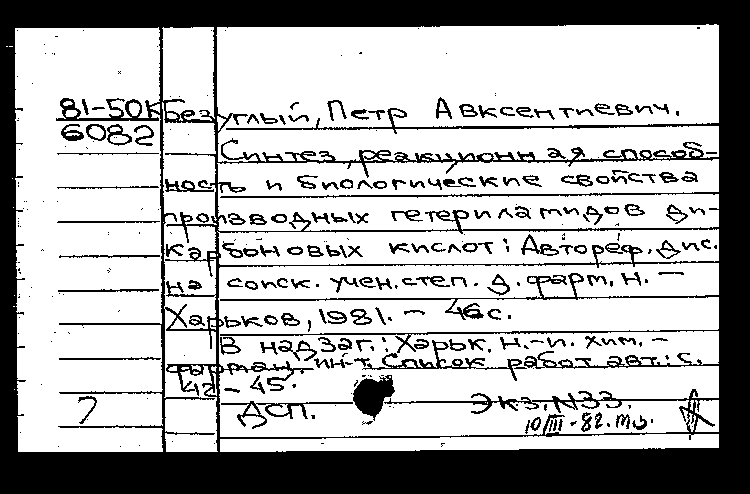 81-50К Безуглый, Петр Авксентиевич.
6082
Синтез, реакционная способ-
ность и биологические свойства
производных гетериламидов ди-
карбоновых кислот: Автореф. дис.
на соиск. учен. степ. д. фарм. н. —
Харьков, 1981. — 46 с.
В надзаг.: Харьк. н.-и. хим.-
фармац. ин-т. Список работ авт.: с.
42 - 45.
ДСП. Экз. N33.
10/III-82.